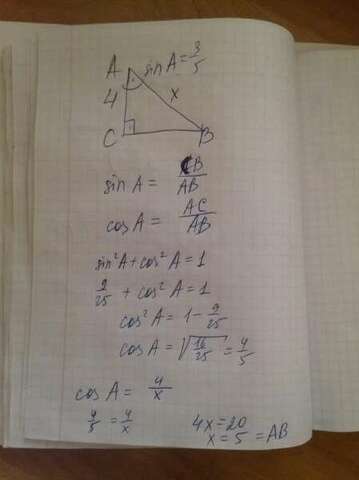 A sin A = 3/5
4 x
C B
sin A = CB/AB
cos A = AC/AB
sin²A + cos²A = 1
9/25 + cos²A = 1
cos²A = 1 - 9/25
cos A = √16/25 = 4/5
cos A = 4/x
4/5 = 4/x 4x = 20
x = 5 = AB